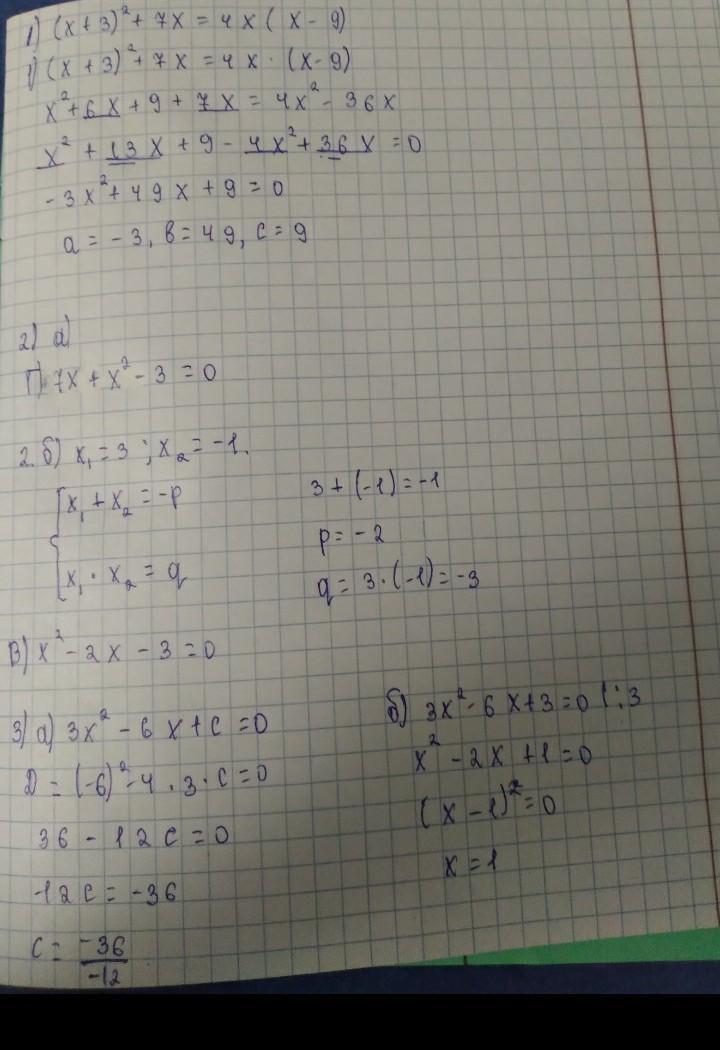 1) (x+3)² + 7x = 4x (x - 9)
1) (x+3)² + 7x = 4x · (x-9)
x² + 6x + 9 + 7x = 4x² - 36x
x² + 13x + 9 - 4x² + 36x = 0
-3x² + 49x + 9 = 0
a = -3, b = 49, c = 9
2) а)
Г) 7x + x² - 3 = 0
2. б) x₁ = 3 ; x₂ = -1.
x₁ + x₂ = -p
x₁ · x₂ = q
3 + (-1) = -1
p = -2
q = 3 · (-1) = -3
В) x² - 2x - 3 = 0
3) а) 3x² - 6x + c = 0
D = (-6)² - 4 · 3 · c = 0
36 - 12c = 0
-12c = -36
c = -36/-12
б) 3x² - 6x + 3 = 0 | : 3
x² - 2x + 1 = 0
(x - 1)² = 0
x = 1